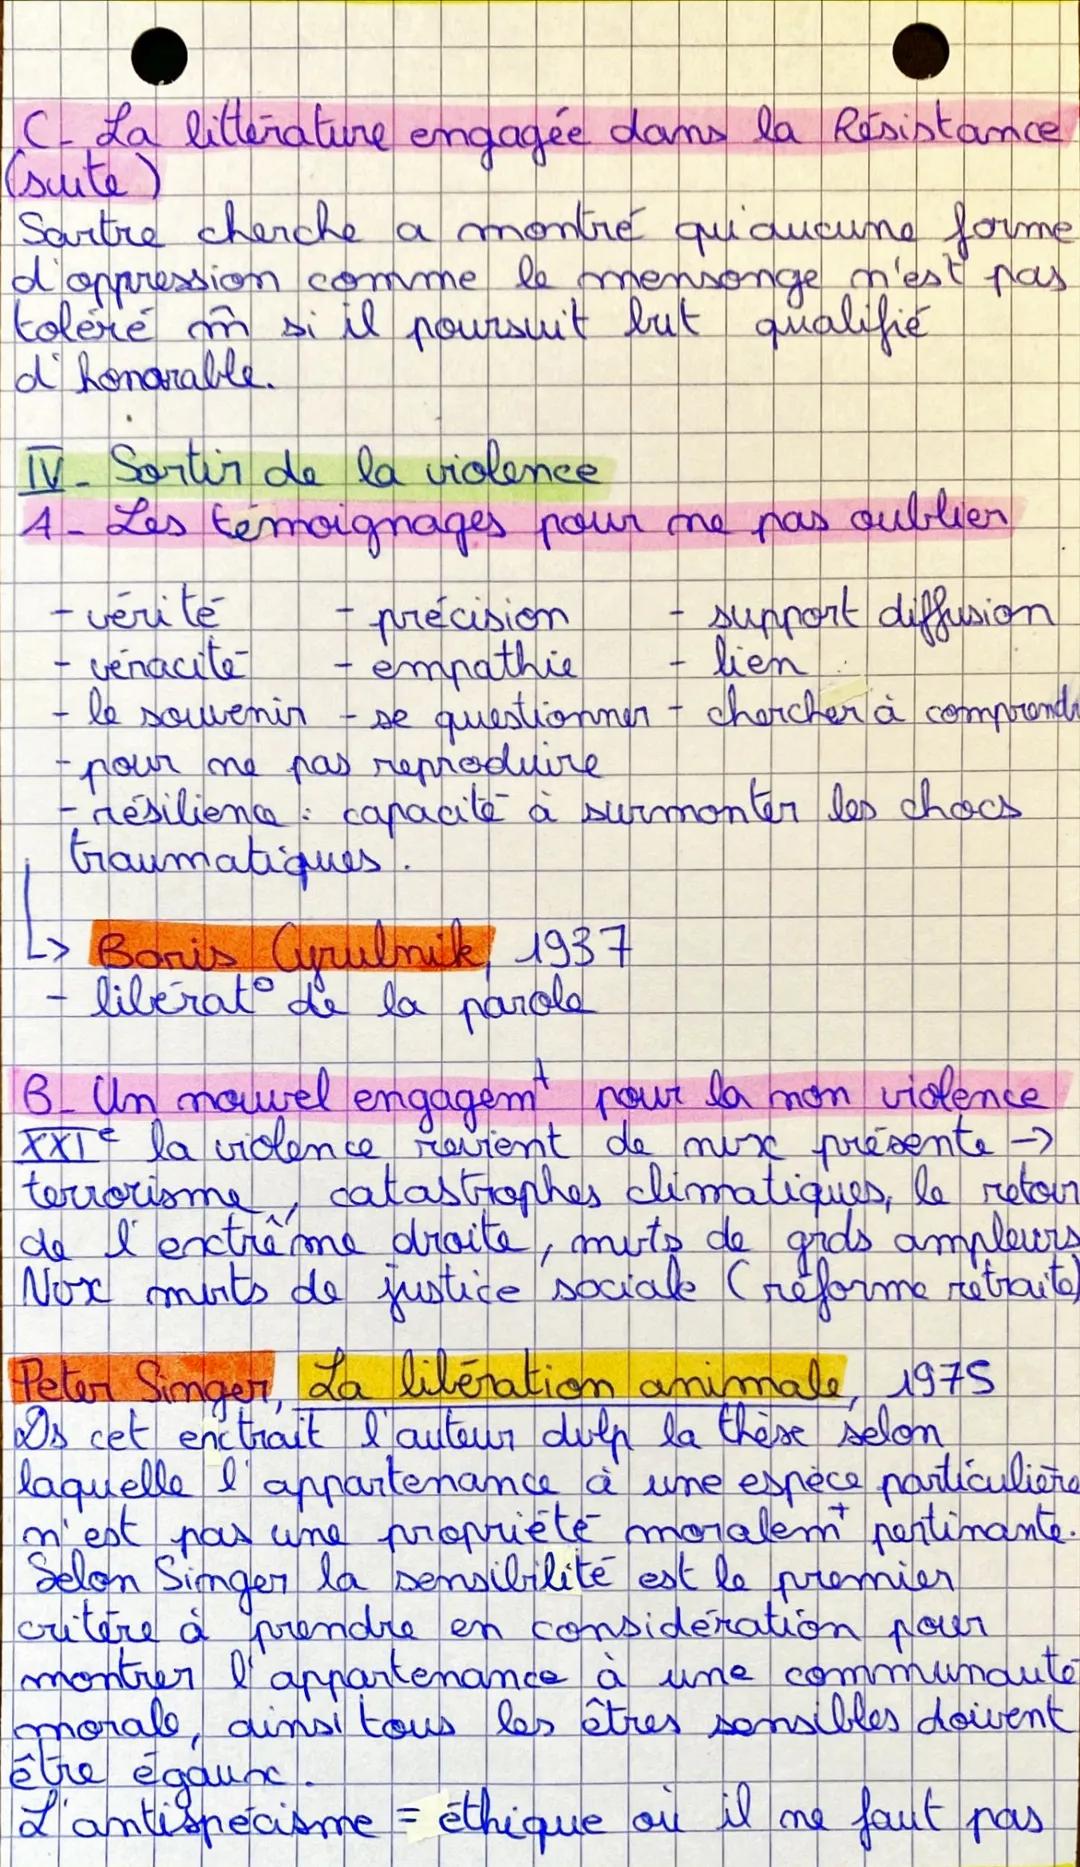 C- La littérature engagée dans la Résistance
(suite)
Sartre cherche a montré qu'aucune forme
d'oppression comme le mensonge n'est pas
toléré m̂ si il poursuit but qualifié
d'honorable.
IV- Sortir de la violence
A- Les témoignages pour ne pas oublier
- vérité - précision - support diffusion
- véracité - empathie - lien
- le souvenir - se questionner - chercher à comprendre
- pour ne pas reproduire
- résilience : capacité à surmonter les chocs
traumatiques.
↳ Boris Cyrulnik, 1937
- libérat° de la parole
B- Un nouvel engagemt pour la non violence
XXIe la violence revient de mix présente →
terrorisme, catastrophes climatiques, le retour
de l'extrême droite, mvts de grds ampleurs
Nvx mvts de justice sociale (réforme retraite)
Peter Singer, La libération animale, 1975
Ds cet extrait l'auteur dvlp la thèse selon
laquelle l'appartenance à une espèce particulière
n'est pas une propriété moralemt pertinante.
Selon Singer la sensibilité est le premier
critère à prendre en considération pour
montrer l'appartenance à une communauté
morale, ainsi tous les êtres sensibles doivent
être égaux.
L'antispécisme = éthique où il ne faut pas